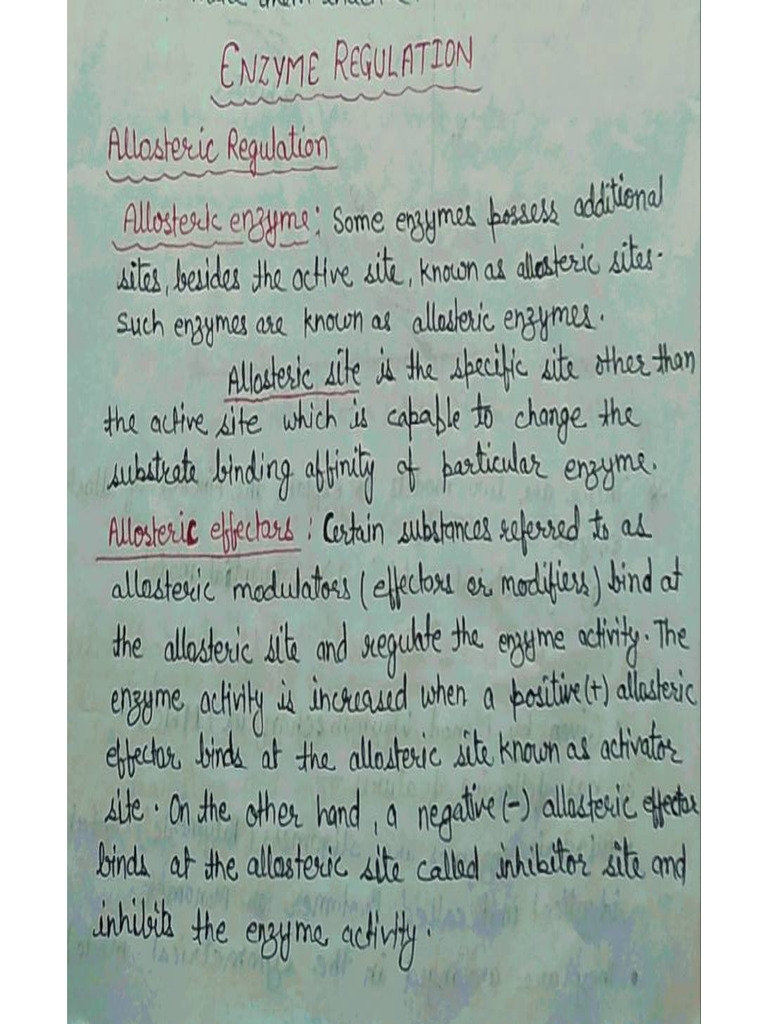 ENZYME REGULATION
Allosteric Regulation
Allosteric enzyme: Some enzymes possess additional
sites, besides the active site, known as allosteric sites.
Such enzymes are known as allosteric enzymes.
Allosteric site is the specific site other than
the active site which is capable to change the
substrate binding affinity of particular enzyme.
Allosteric effectors: Certain substances referred to as
allosteric modulators (effectors or modifiers) bind at
the allosteric site and regulate the enzyme activity. The
enzyme activity is increased when a positive (+) allosteric
effector binds at the allosteric site known as activator
site. On the other hand, a negative (-) allosteric effector
binds at the allosteric site called inhibitor site and
inhibits the enzyme activity.